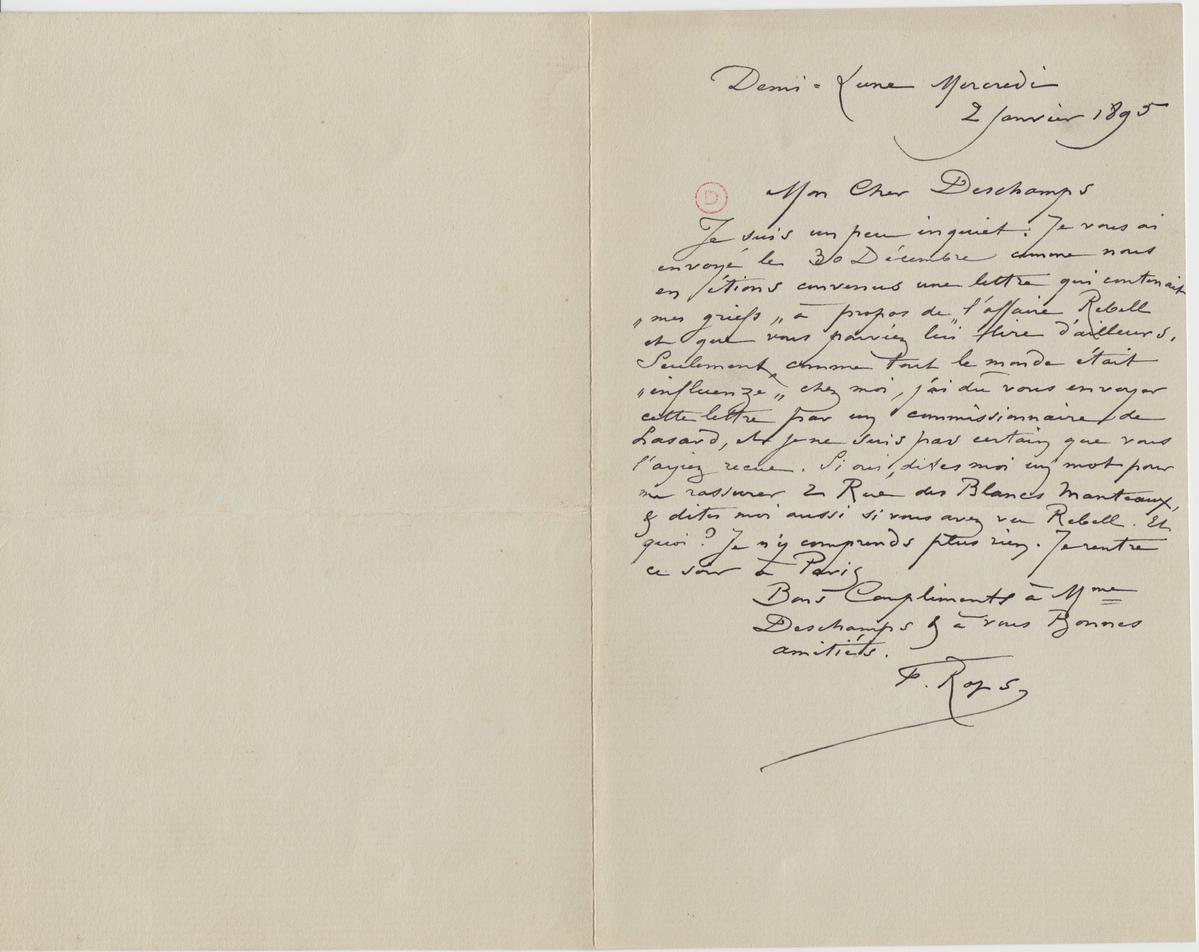 Demi-Lune Mercredi
2 Janvier 1895
D
Mon Cher Deschamps
Je suis un peu inquiet : Je vous ai
envoyé le 30 Décembre comme nous
en étions convenus une lettre qui contenait
„mes griefs„ à propos de „l'affaire Rebell
et que vous pouviez lui lire d'ailleurs.
Seulement, comme tout le monde était
„influenzé„ chez moi, j'ai dû vous envoyer
cette lettre par un commissionnaire de
hasard, et je ne suis pas certain que vous
l'ayiez reçue. Si oui, dites moi un mot pour
me rassurer 21 Rue des Blancs Manteaux,
& dites moi aussi si vous avez vu Rebell. Et
quoi ? Je n'y comprends plus rien. Je rentre
ce soir à Paris
Bons Compliments à Mme
Deschamps & à vous Bonnes
amitiés.
F. Rops